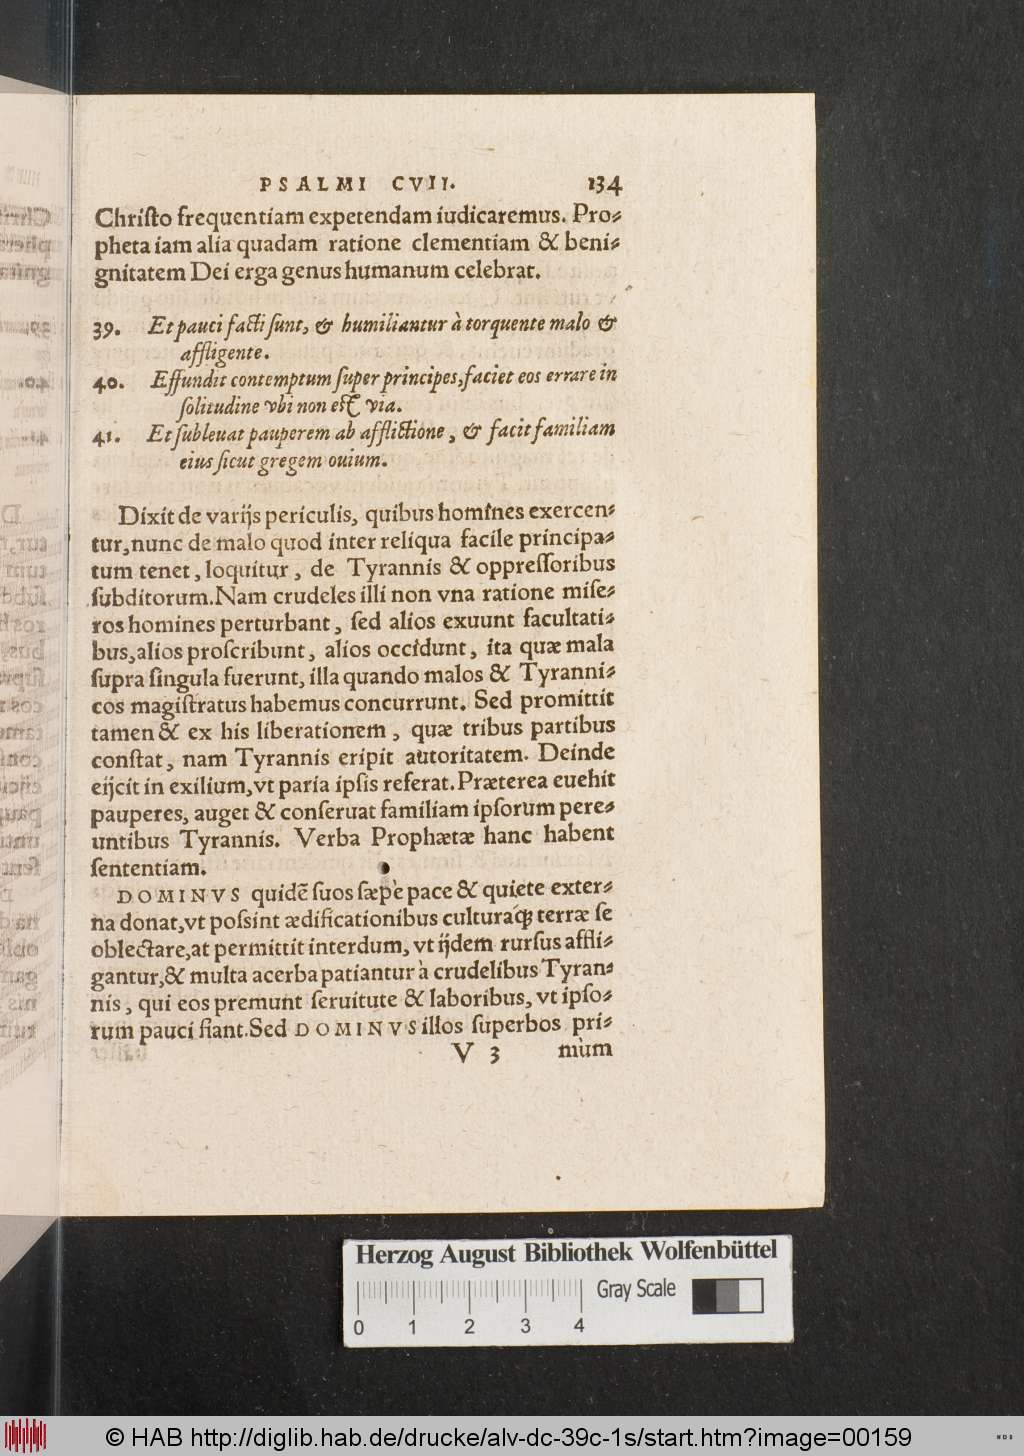 PSALMI CVII. 134
Chriſto frequentiam expetendam iudicaremus. Pro-
pheta iam alia quadam ratione clementiam & beni-
gnitatem Dei erga genus humanum celebrat.
39. Et pauci facti ſunt, & humiliantur à torquente malo &
affligente.
40. Effundit contemptum ſuper principes, faciet eos errare in
ſolitudine vbi non eſt via.
41. Et ſubleuat pauperem ab afflictione, & facit familiam
eius ſicut gregem ouium.
Dixit de varijs periculis, quibus homines exercen-
tur, nunc de malo quod inter reliqua facile principa-
tum tenet, loquitur, de Tyrannis & oppreſſoribus
ſubditorum. Nam crudeles illi non vna ratione miſe-
ros homines perturbant, ſed alios exuunt facultati-
bus, alios proſcribunt, alios occidunt, ita quæ mala
ſupra ſingula fuerunt, illa quando malos & Tyranni-
cos magiſtratus habemus concurrunt. Sed promittit
tamen & ex his liberationem, quæ tribus partibus
conſtat, nam Tyrannis eripit autoritatem. Deinde
eijcit in exilium, vt paria ipſis referat. Præterea euehit
pauperes, auget & conſeruat familiam ipſorum pere-
untibus Tyrannis. Verba Prophætæ hanc habent
ſententiam.
DOMINVS quidē ſuos ſæpè pace & quiete exter-
na donat, vt poſsint ædificationibus culturáꝗ terræ ſe
oblectare, at permittit interdum, vt ijdem rurſus affli-
gantur, & multa acerba patiantur à crudelibus Tyran-
nis, qui eos premunt ſeruitute & laboribus, vt ipſo-
rum pauci fiant. Sed DOMINVS illos ſuperbos pri-
V 3 mùm
Herzog August Bibliothek Wolfenbüttel
Gray Scale
0 1 2 3 4
© HAB http://diglib.hab.de/drucke/alv-dc-39c-1s/start.htm?image=00159